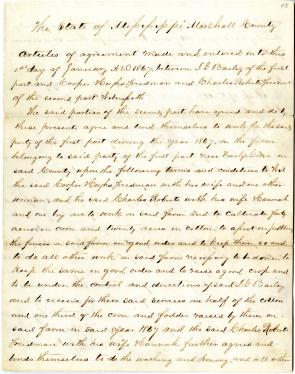 The State of Mississippi Marshall County
Articles of agreement made and entered into this
1st day of January A.D. 1867 between J. E. Bailey of the first
part and Cooper Hughs Freedman and Charles Roberts Freedman
of the second part Witnesseth
The said parties of the second part have agreed and do by
these presents agree and bind themselves to work for the said
party of the first part during the year 1867, on the farm
belonging to said party of the first part near
said County upon the following terms and conditions to Wit
the said Cooper Hughs Freedman with his wife and one other
woman, and the said Charles Roberts with his wife Hannah
and one boy are to work on said farm and to cultivate forty
acres in corn and twenty acres in cotton, to assist in putting
the fences on said farm in good order and to keep them so and
to do all other work on said farm necessary to be done to
keep the same in good order and to raise a good crop and
to be under the control and directions of said J E Bailey
and to receive for their said services one half of the cotton
and one third of the corn and fodder raised by them on
said farm in said year 1867 and the said Charles Roberts
Freedman with his wife Hannah further agree and
binds themselves to do the washing and Ironing, and all other